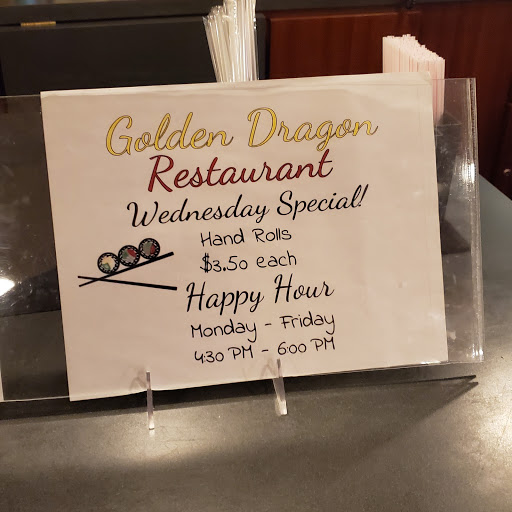 Golden Dragon
Restaurant
Wednesday Special!
Hand Rolls
$3.50 each
Happy Hour
Monday - Friday
4:30 PM - 6:00 PM